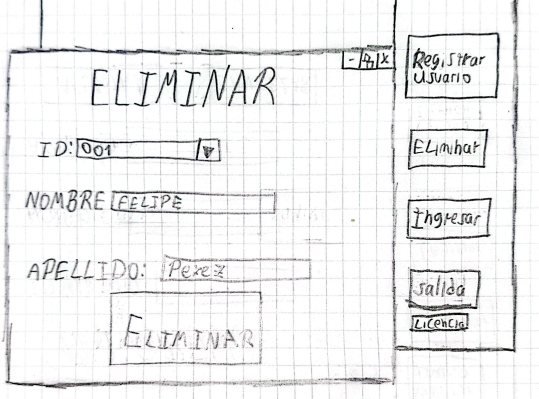 - X
ELIMINAR
ID: 001
NOMBRE FELIPE
APELLIDO: Perez
ELIMINAR
Registrar
Usuario
ELiminar
Ingresar
salida
Licencia